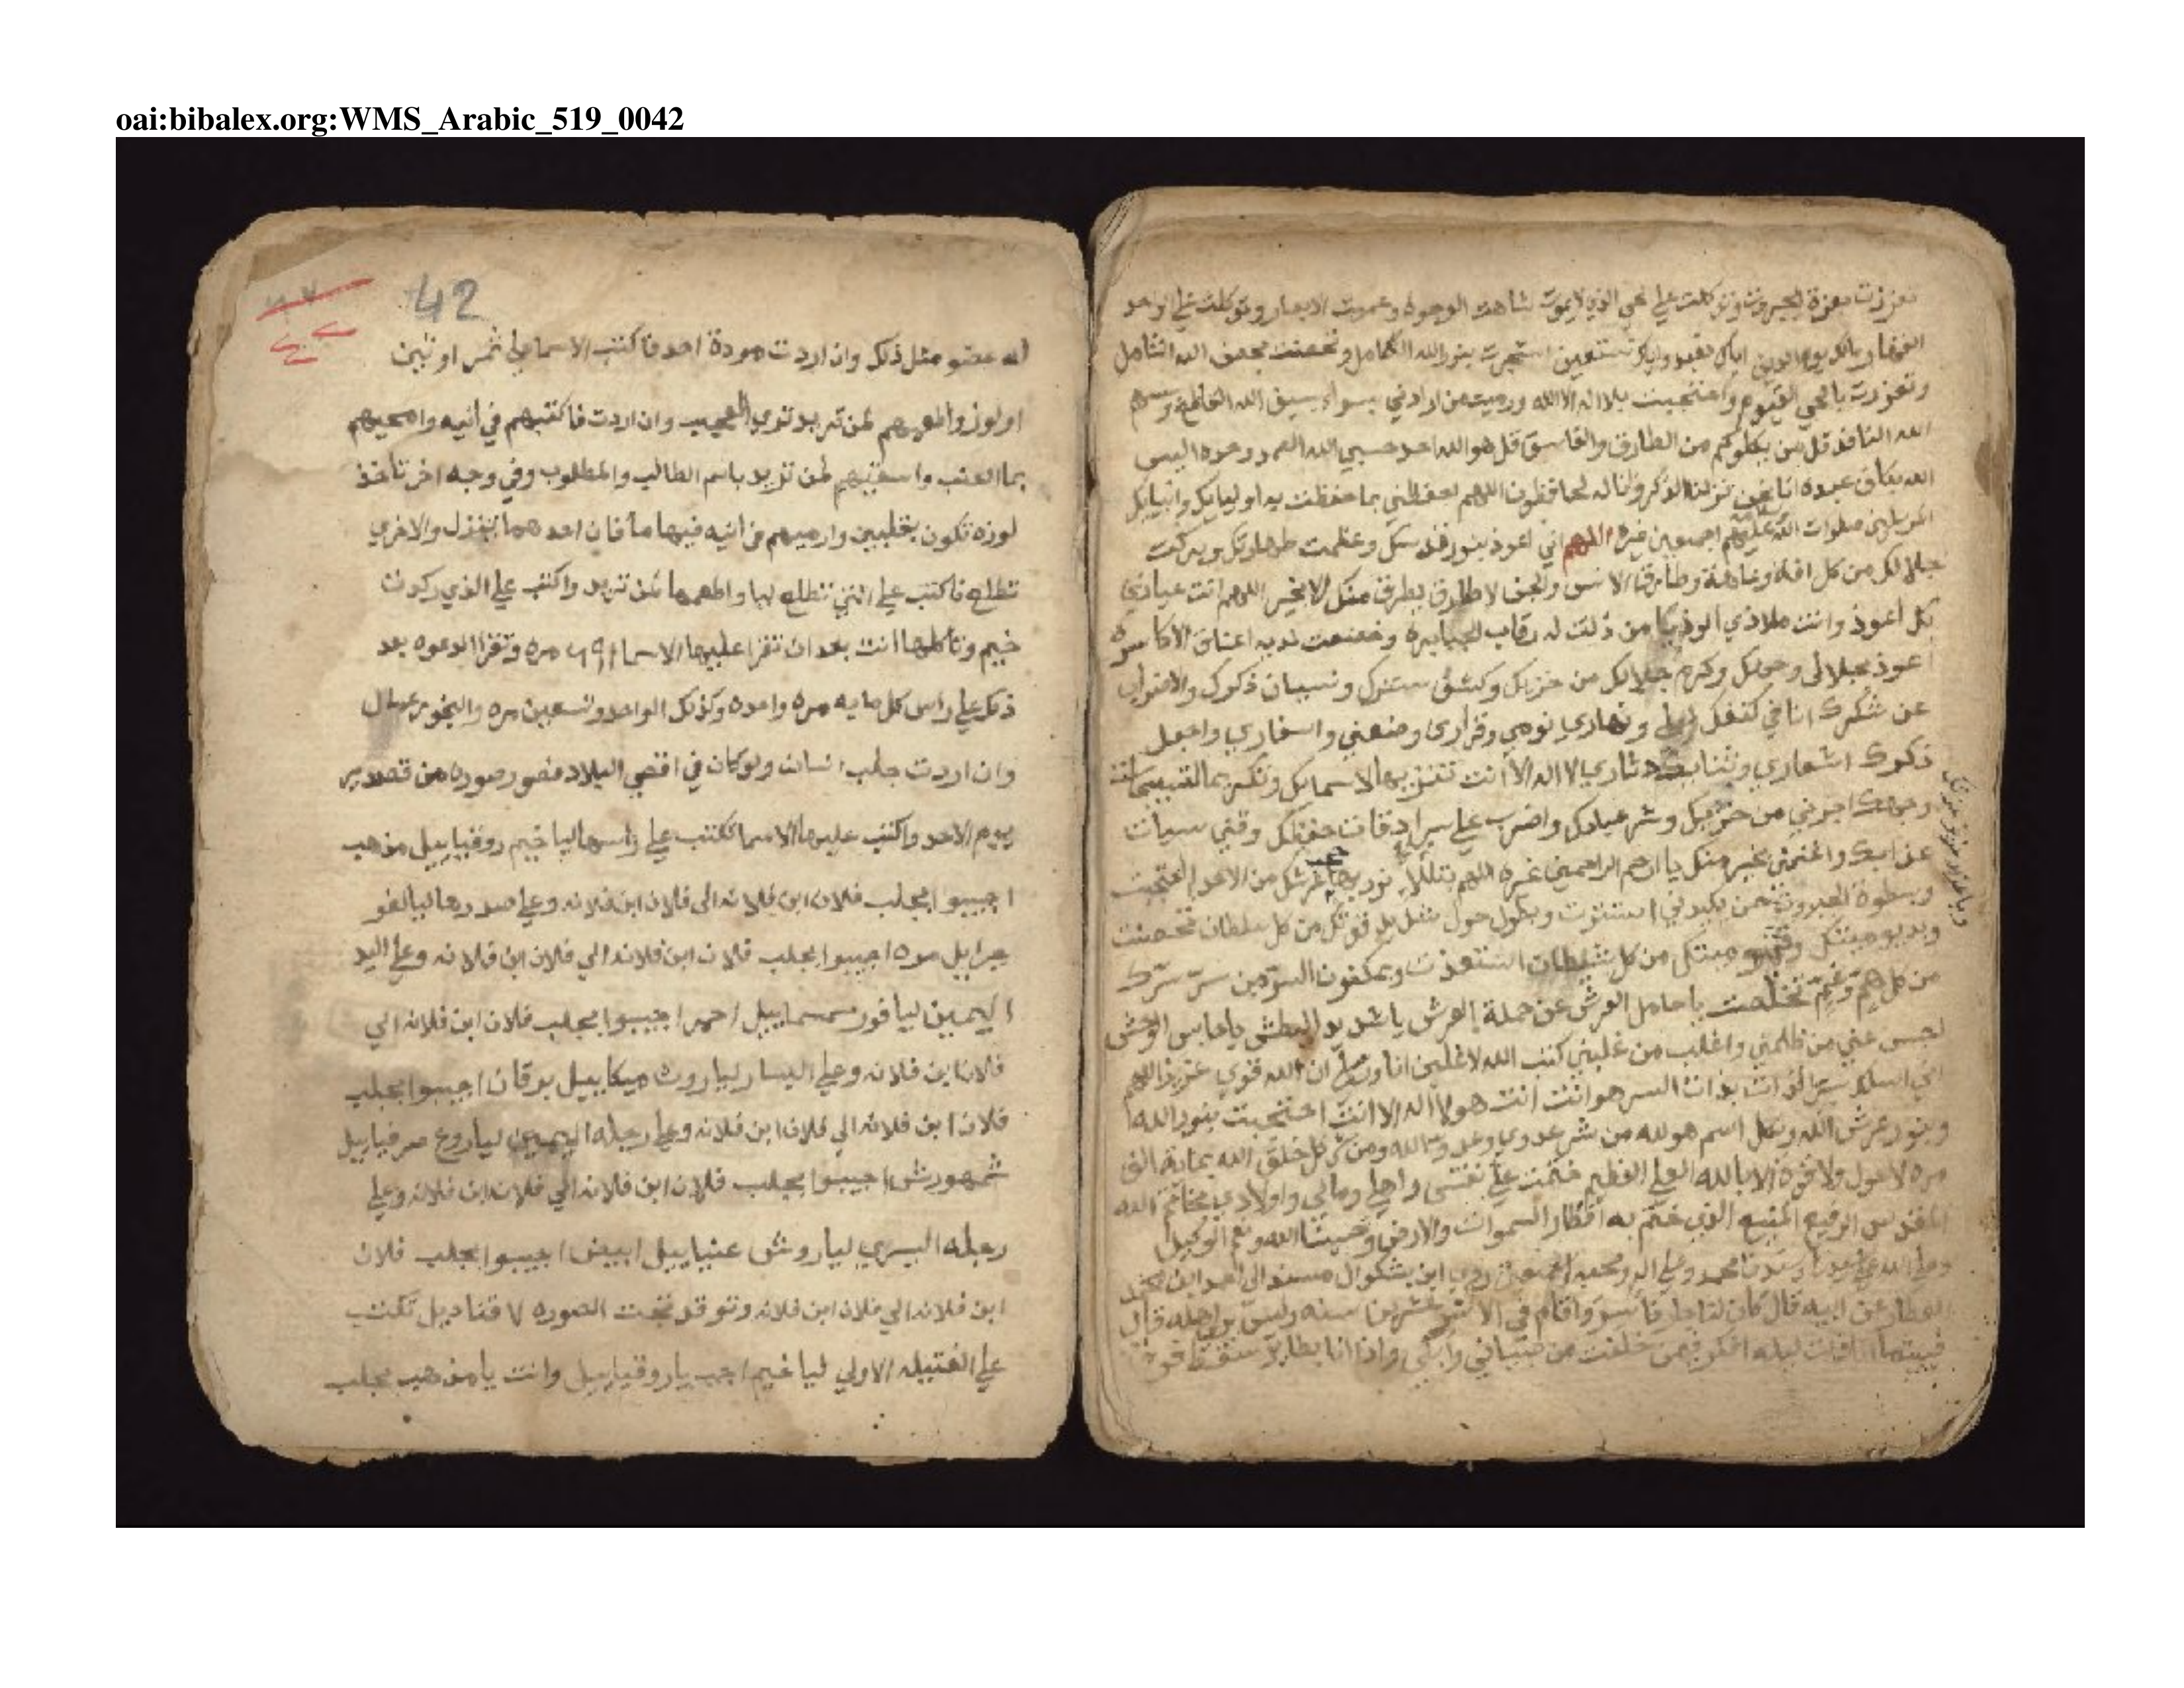 oai:bibalex.org:WMS_Arabic_519_0042
تعززت بعزة الجبروت وتوكلت علي الحي الذي لا يموت شاهت الوجوه وعميت الابصار وتوكلت علي الواحد
القهار مالك يوم الدين اياك نعبد واياك نستعين استجرت بنور الله الكامل وتحصنت بحصن الله الشامل
وتعززت بالحي القيوم واحتجبت بلا اله الا الله ورميت من ارادني بسوء بسيف الله القاطع وسهم
الله النافذ قل من يكلوكم من الطارق والغاسق قل هو الله احد حسبي الله الصمد وحده اليس
الله بكاف عبده انا نحن نزلنا الذكر وانا له لحافظون اللهم احفظني بما حفظت به اوليايك وانبيايك
المرسلين صلوات الله عليهم اجمعين غيره اللهم اني اعوذ بنور قدسك وعظمت طهارتك وبركت
جلالك من كل افة وعاهة وطارق الانس والجن الا طارق يطرق منك الا بخير اللهم انت عياذي
بك اعوذ وانت ملاذي الوذ بك يا من ذلت له رقاب الجبابره وخضعت لديه اعناق الاكاسره
اعوذ بجلالك وكرم جلالك من خزيك وكشف سترك ونسيان ذكرك والاضراب
عن شكرك انا في كنفك ليلي ونهاري نومي وقراري وضعني واسفاري واجعل
ذكرك اشعاري وثنايك دثاري لا اله الا انت تنزيها لاسمايك وتكريما لسبحات
وجهك اجرني من خزيك وشر عبادك واضرب علي سرادقات حفظك وقني سيات
عذابك واغنمني بخير منك يا ارحم الراحمين غيره اللهم بتلالاء نور بهاء حجب عرشك من الاعداء احتجبت
وبسطوة الجبروت ممن يكيدني استترت وبطول حول شديد قوتك من كل سلطان تحصنت
وبديموميتك وقيوميتك من كل شيطان استعذت وبمكنون السر من سر سرك
من كل هم وغم تخلصت يا حامل العرش عن حملة العرش يا شديد البطش يا حابس الوحش
احبس عني من ظلمني واغلب من غلبني كتب الله لاغلبن انا ورسلي ان الله قوي عزيز اللهم
اني اسالك بسر الذات بذات السر هو انت انت هو لا اله الا انت احتجبت بنور الله
وبنور عرش الله وبكل اسم هو لله من شر عدوي وعدو الله ومن شر كل خلق الله بماية الف
مره لا حول ولا قوة الا بالله العلي العظيم ختمت علي نفسي واهلي ومالي واولادي بخاتم الله
القدوس الرفيع المنيع الذي ختم به اقطار السموات والارض وحسبنا الله ونعم الوكيل
وصلي الله علي سيدنا محمد وعلي اله وصحبه اجمعين روي ابن بشكوال مسندا الي احمد ابن محمد
العطار عن ابيه قال كان لنا جار فاسر واقام في الاسر عشرين سنه وليس يري اهله قال
فبينما انا ذات ليله افكر فيمن خلفت من صبياني وابكي واذا انا بطاير سقط فوق
42
له عضو مثل ذلك وان اردت مودة احد فاكتب الاسما علي ثمر او تين
او لوز واطعمهم لمن تريد تري العجب وان اردت فاكتبهم في انيه وامحيهم
بما العنب واسقيهم لمن تريد باسم الطالب والمطلوب وفي وجه اخر تاخذ
لوزه تكون بقلبين وارميهم في انيه فيها ما فان احدهما تنزل والاخري
تطلع فاكتب علي التي تطلع ليا واطعمها لمن تريد واكتب علي الذي ركدت
خيم وتاكلها انت بعد ان تقرا عليها الاسما مره وتقرا الدعوه بعد
ذلك علي راس كل مايه مره واحده وكذلك الواحد وتسعين مره والبخور عمال
وان اردت جلب انسان ولو كان في اقصي البلاد فصور صوره من قصدير
يوم الاحد واكتب عليها الاسما تكتب علي راسها ليا خيم روقياييل مذهب
اجيبوا بجلب فلان ابن فلانه الى فلان ابن فلانه وعلي صدرها ليالغو
جبراييل مره اجيبوا بجلب فلان ابن فلانه الي فلان ابن فلانه وعلي اليد
اليمين ليافور سمسماييل احمر اجيبوا بجلب فلان ابن فلانه الي
فلان ابن فلانه وعلي اليسار لياروث ميكاييل برقان اجيبوا بجلب
فلان ابن فلانه الي فلان ابن فلانه وعلي رجله اليمين لياروغ صرفياييل
شمهورش اجيبوا بجلب فلان ابن فلانه الي فلان ابن فلانه وعلي
رجله اليسري لياروش عنياييل ابيض اجيبوا بجلب فلان
ابن فلانه الي فلان ابن فلانه وتوقد تحت الصوره ٧ قناديل تكتب
علي الفتيله الاولي ليا خيم اجب يا روقياييل وانت يا مذهب بجلب